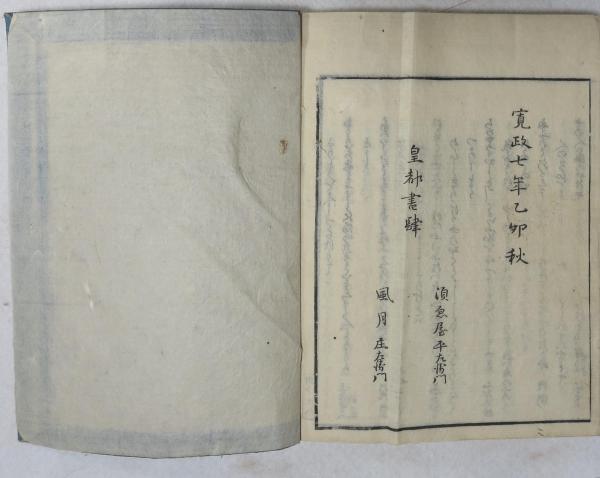 寛政七年乙卯秋
皇都書肆
須磨屋平左衛門
風月庄左衛門